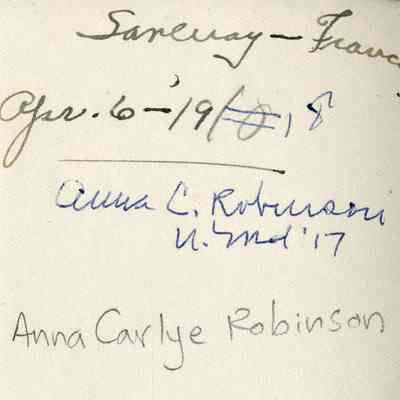 Sarcuay - France
Apr. 6 - '19 18
Anna C. Robinson
Anna Carlye Robinson